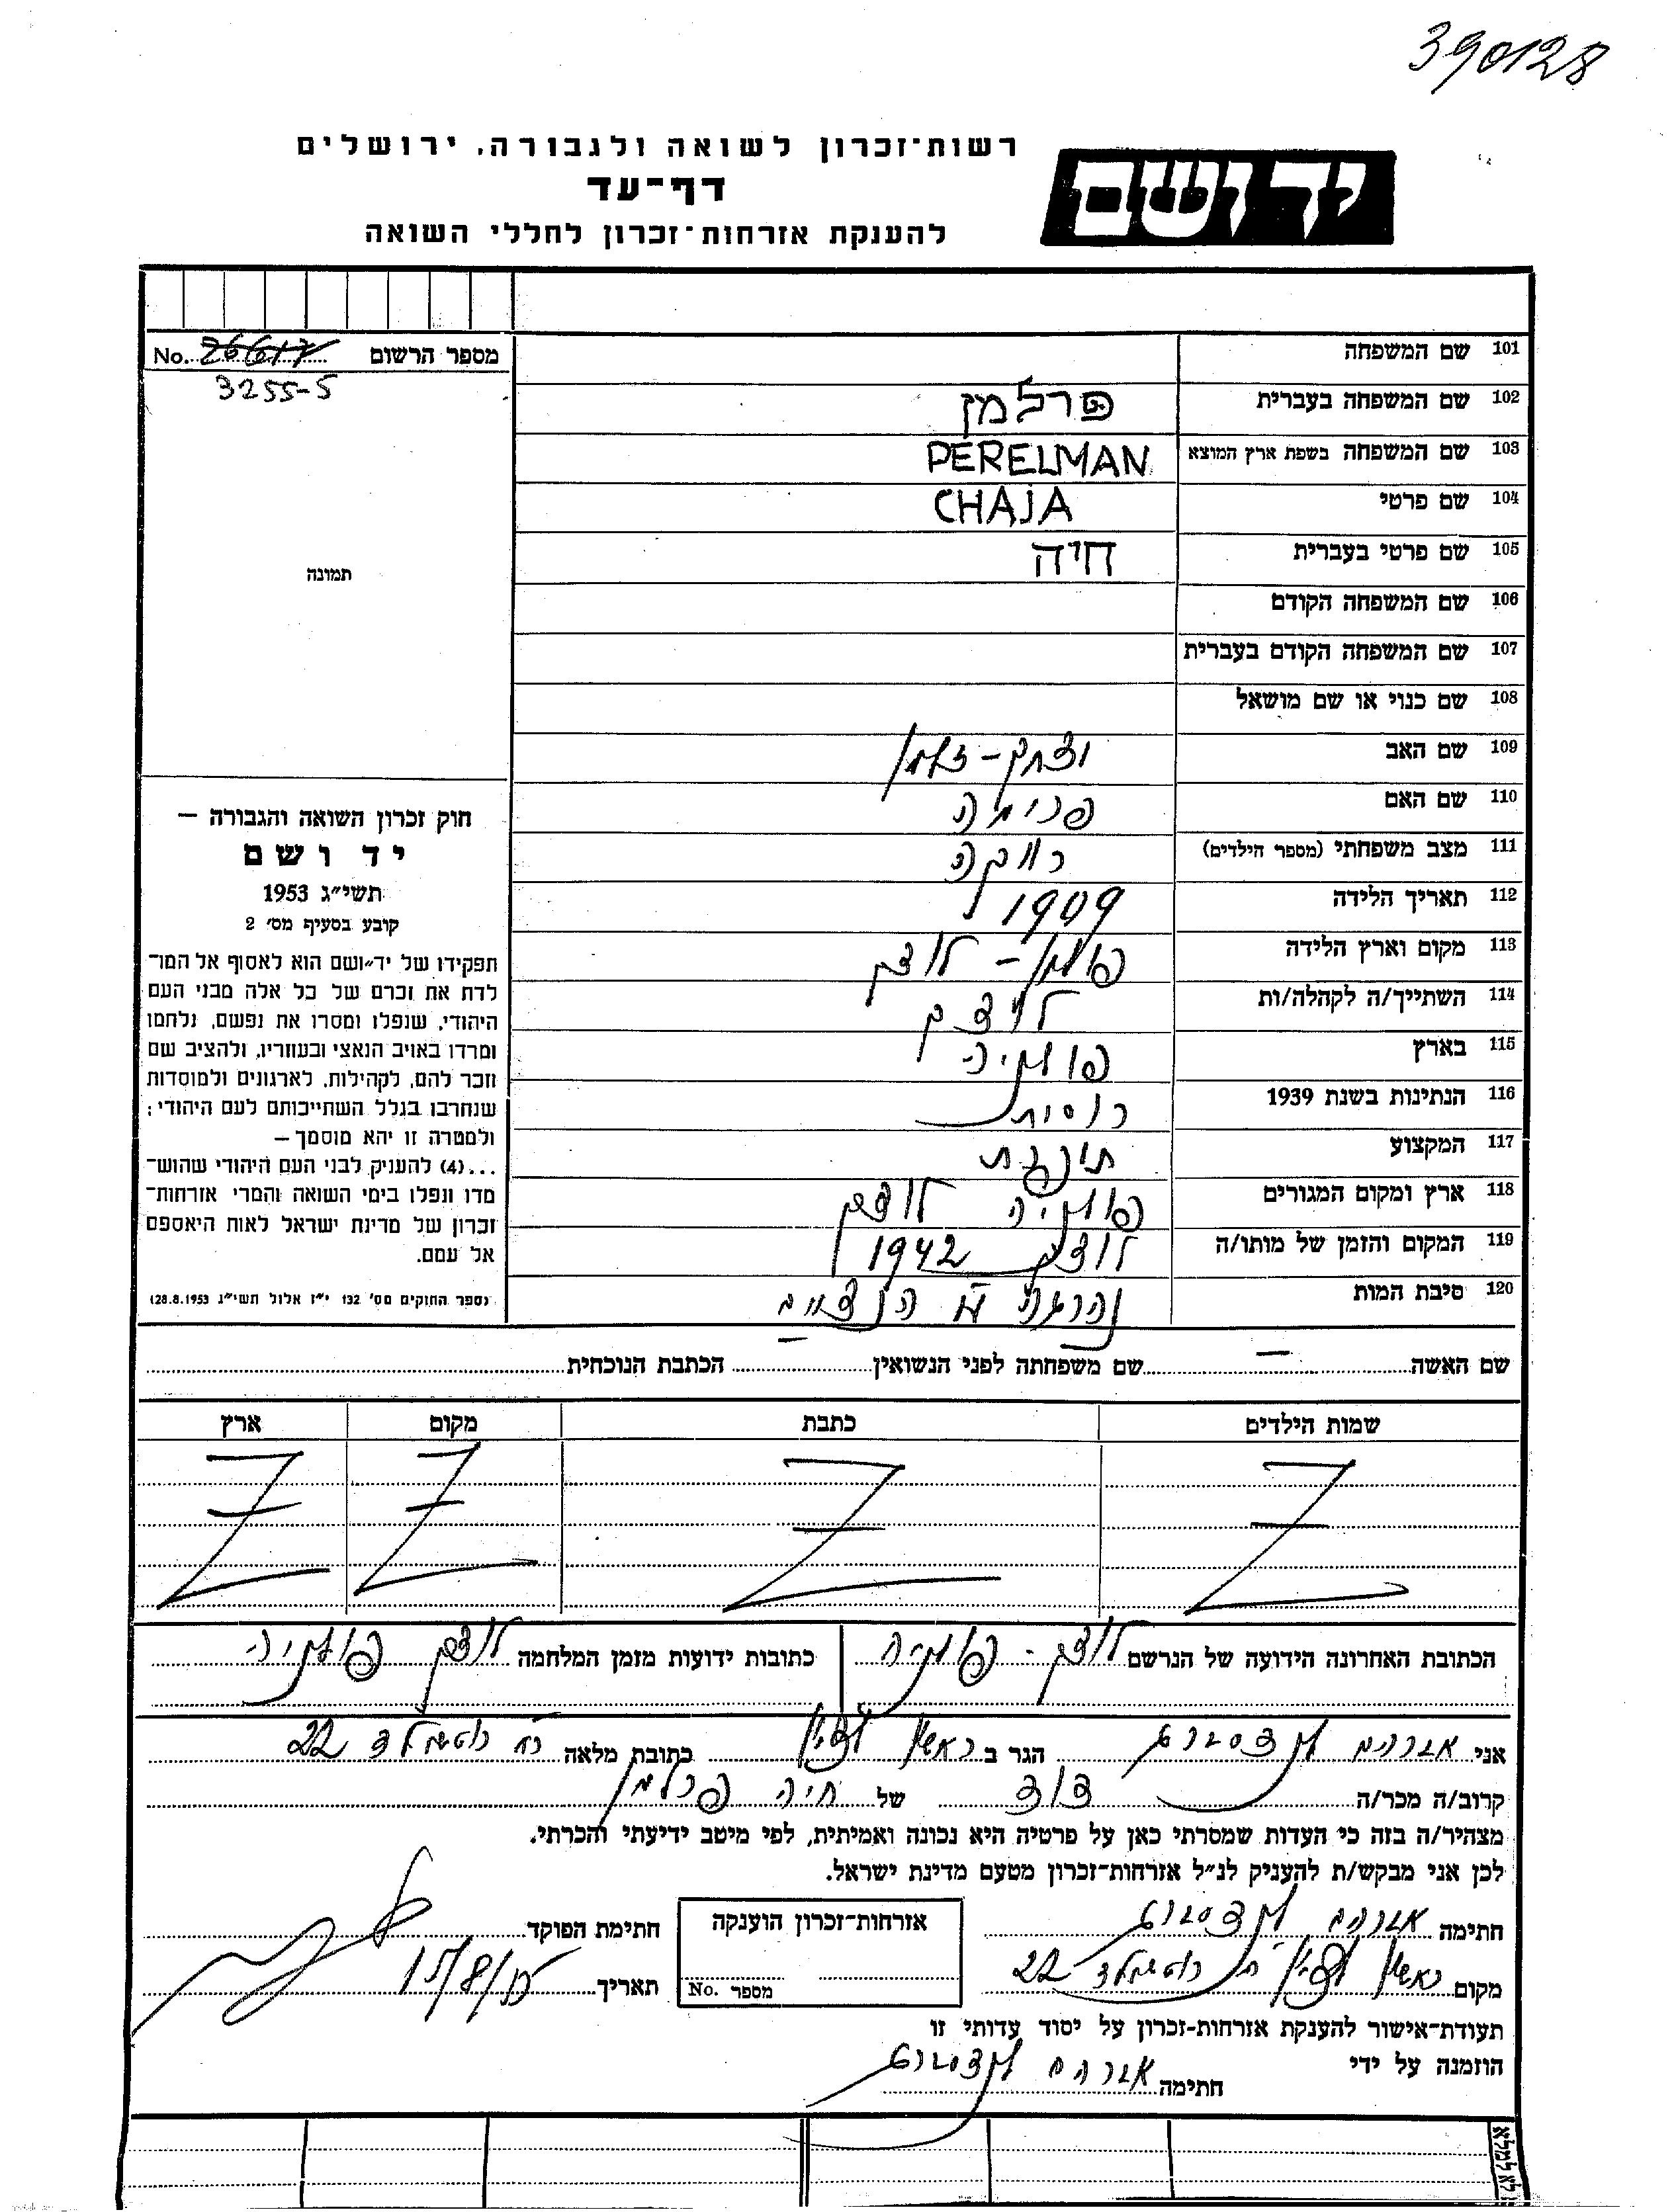 390128
יד ושם
רשות־זכרון לשואה ולגבורה, ירושלים
דף־עד
להענקת אזרחות־זכרון לחללי השואה
מספר הרשום No. 26617
3255-5
תמונה
101 שם המשפחה
102 שם המשפחה בעברית פרלמן
103 שם המשפחה בשפת ארץ המוצא PERELMAN
104 שם פרטי CHAJA
105 שם פרטי בעברית חיה
106 שם המשפחה הקודם
107 שם המשפחה הקודם בעברית
108 שם כנוי או שם מושאל
109 שם האב יצחק - זלמן
110 שם האם
111 מצב משפחתי (מספר הילדים) רווקה
112 תאריך הלידה 1909
113 מקום וארץ הלידה פולין - לוצק
114 השתייך/ה לקהלה/ות לוצק
115 בארץ פולניה
116 הנתינות בשנת 1939
117 המקצוע תופרת
118 ארץ ומקום המגורים פולניה לוצק
119 המקום והזמן של מותו/ה לוצק 1942
120 סיבת המות נהרגה ע"י הנאצים
חוק זכרון השואה והגבורה –
יד ושם
תשי״ג 1953
קובע בסעיף מס׳ 2
תפקידו של יד־ושם הוא לאסוף אל המו־
לדת את זכרם של כל אלה מבני העם
היהודי, שנפלו ומסרו את נפשם, נלחמו
ומרדו באויב הנאצי ובעוזריו, ולהציב שם
וזכר להם, לקהילות, לארגונים ולמוסדות
שנחרבו בגלל השתייכותם לעם היהודי;
ולמטרה זו יהא מוסמך –
...(4) להעניק לבני העם היהודי שהוש־
מדו ונפלו בימי השואה והמרי אזרחות־
זכרון של מדינת ישראל לאות היאספם
אל עמם.
(ספר החוקים מס׳ 132 י״ז אלול תשי״ג 28.8.1953)
שם האשה – שם משפחתה לפני הנשואין – הכתבת הנוכחית
שמות הילדים כתבת מקום ארץ
הכתובת האחרונה הידועה של הנרשם לוצק - פולניה
כתובות ידועות מזמן המלחמה לוצק פולניה
אני אברהם הגר ב ראשון לציון כתובת מלאה רח' רוטשילד 22
קרוב/ה מכר/ה דוד של חיה פרלמן
מצהיר/ה בזה כי העדות שמסרתי כאן על פרטיה היא נכונה ואמיתית, לפי מיטב ידיעתי והכרתי.
לכן אני מבקש/ת להעניק לנ״ל אזרחות־זכרון מטעם מדינת ישראל.
חתימה אברהם
מקום ראשון לציון רח' רוטשילד 22
אזרחות־זכרון הוענקה
מספר No.
חתימת הפוקד
תאריך
תעודת־אישור להענקת אזרחות־זכרון על יסוד עדותי זו
הוזמנה על ידי
חתימה אברהם